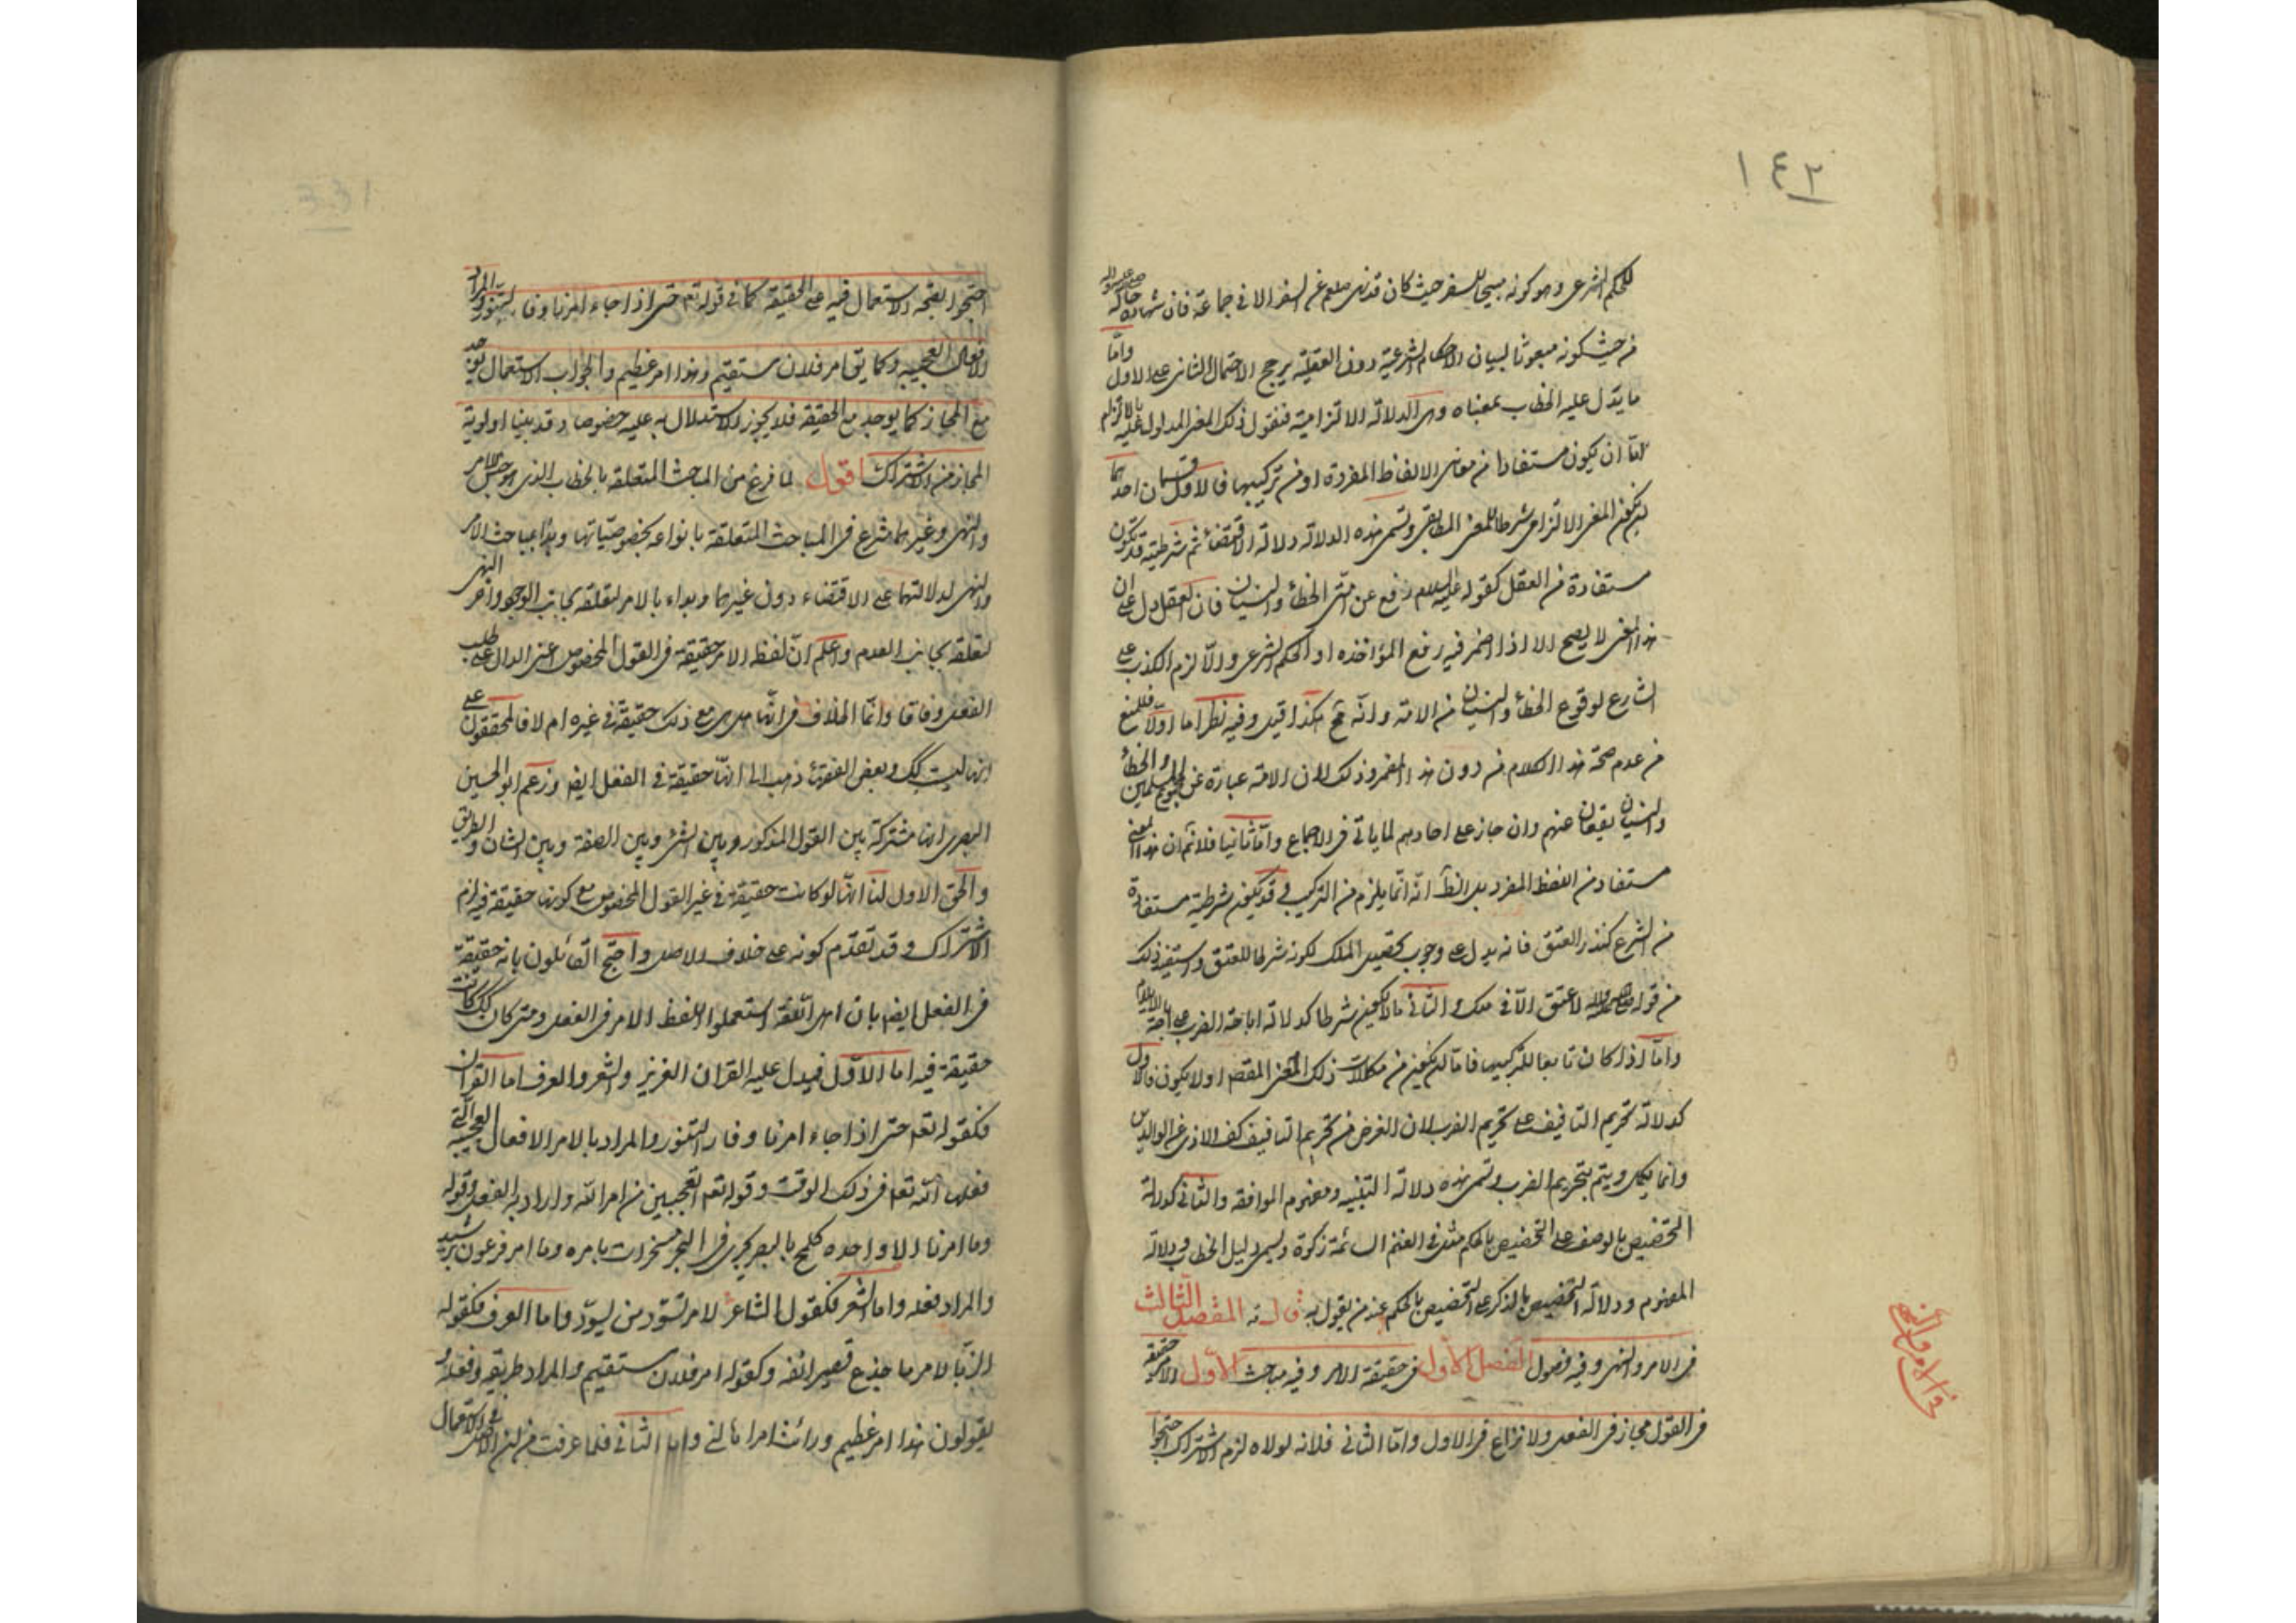 ١٤٢
للحكم الشرعى وهو كونه مبيحا للسفر حيث كان قد نهى صلعم عن السفر الا فى جماعة فان شهادة حاله
من حيث كونه مبعوثا لبيان الاحكام الشرعية دون العقلية يرجح الاحتمال الثانى على الاول واما
ما يدل عليه الخطاب بمعناه وهى الدلالة الالتزامية فنقول ذلك المعنى المدلول عليه بالالتزام
اما ان يكون مستفادا من معانى الالفاظ المفردة او من تركيبها فالاول قسمان احدهما
ان يكون المعنى الالتزامى شرطا للمعنى المطابقى وتسمى هذه الدلالة دلالة الاقتضاء ثم شرطيته قد تكون
مستفادة من العقل كقوله عليه السلام رفع عن امتى الخطأ والنسيان فان العقل دل على ان
هذا المعنى لا يصح الا اذا اضمر فيه رفع المؤاخذه او الحكم الشرعى والا لزم الكذب على
الشارع لوقوع الخطأ والنسيان من الامة وانه مح هكذا قيل وفيه نظر اما اولا فللمنع
من عدم صحة هذا الكلام من دون هذا المضمر وذلك لان الامة عبارة عن مجموع المسلمين والخطأ
والنسيان يقعان عنهم وان جاز على احادهم لما ياتى فى الاجماع واما ثانيا فلا نم ان هذا المعنى
مستفاد من اللفظ المفرد بل الظ انه انما يلزم من التركيب وقد يكون شرطيته مستفادة
من الشرع كنذر العتق فانه يدل على وجوب تحصيل الملك لكونه شرطا للعتق واستفيد ذلك
من قوله لا عتق الا فى ملك والثانى ما لا يكون شرطا كدلالة اباحة الضرب على اباحة الايلام
واما اذا كان تابعا للتركيب فاما ان يكون من مكملات ذلك المعنى المقصود او لا يكون فالاول
كدلالة تحريم التافيف على تحريم الضرب لان الغرض من تحريم التافيف كف الاذى عن الوالدين
وانما يكمل ويتم بتحريم الضرب وتسمى هذه دلالة التنبيه ومفهوم الموافقة والثانى كدلالة
التخصيص بالوصف على التخصيص بالحكم مثل فى الغنم السائمة زكوة ويسمى دليل الخطاب ودلالة
المفهوم ودلالة التخصيص بالذكر على التخصيص بالحكم عند من يقول به قال المقصد الثالث
فى الامر والنهى وفيه فصول الفصل الاول فى حقيقة الامر وفيه مباحث الاول الامر حقيقة
فى القول مجاز فى الفعل ولا نزاع فى الاول واما الثانى فلانه لولاه لزم الاشتراك احتجوا
احتجوا بصحة الاستعمال فيه على الحقيقة كما فى قوله تع حتى اذا جاء امرنا وفار التنور والمراد
الافعال العجيبه وكما يق امر فلان مستقيم وهذا امر عظيم والجواب الاستعمال يوجد
مع المجاز كما يوجد مع الحقيقة فلا يجوز الاستدلال به عليه خصوصا وقد بينا اولوية
المجاز من الاشتراك اقول لما فرغ من المباحث المتعلقة بالخطاب الذى هو جنس للامر
والنهى وغيرهما شرع فى المباحث المتعلقة بانواعه بخصوصياتها وبدأ بمباحث الامر
والنهى لدلالتهما على الاقتضاء دون غيرهما وبداء بالامر لتعلقه بجانب الوجود واخر النهى
لتعلقه بجانب العدم واعلم ان لفظ الامر حقيقة فى القول المخصوص اعنى الدال على طلب
الفعل وفاقا وانما الخلاف فى انها هل هى مع ذلك حقيقة فى غيره ام لا فالمحققون على
انها ليست كك وبعض الفقهاء ذهب الى انها حقيقة فى الفعل ايض وزعم ابو الحسين
البصرى انها مشتركة بين القول المذكور وبين الشئ وبين الصفة وبين الشان والطريق
والحق الاول لنا انها لو كانت حقيقة فى غير القول المخصوص مع كونها حقيقة فيه لزم
الاشتراك وقد تقدم كونه على خلاف الاصل واحتج القائلون بانه حقيقة
فى الفعل ايض بان اهل اللغة استعملوا لفظ الامر فى الفعل ومتى كان كك كانت
حقيقة فيه اما الاول فيدل عليه القران العزيز والشعر والعرف اما القران
فكقوله تعم حتى اذا جاء امرنا وفار التنور والمراد بالامر الافعال العجيبه التى
فعلها الله تعم فى ذلك الوقت وقوله تعم اتعجبين من امر الله واراد به الفعل وقوله
وما امرنا الا واحده كلمح بالبصر تجرى فى البحر مسخرات بامره وما امر فرعون برشيد
والمراد فعله واما الشعر فكقول الشاعر لامر تسود من يسود واما العرف فكقوله
الزبا لامر ما جذع قصير انفه وكقوله امر فلان مستقيم والمراد طريقه وفعله و
يقولون هذا امر عظيم ورائت امرا هالنى واما الثانى فلما عرفت من ان الاصل فى الاستعمال
فى الامر والنهى